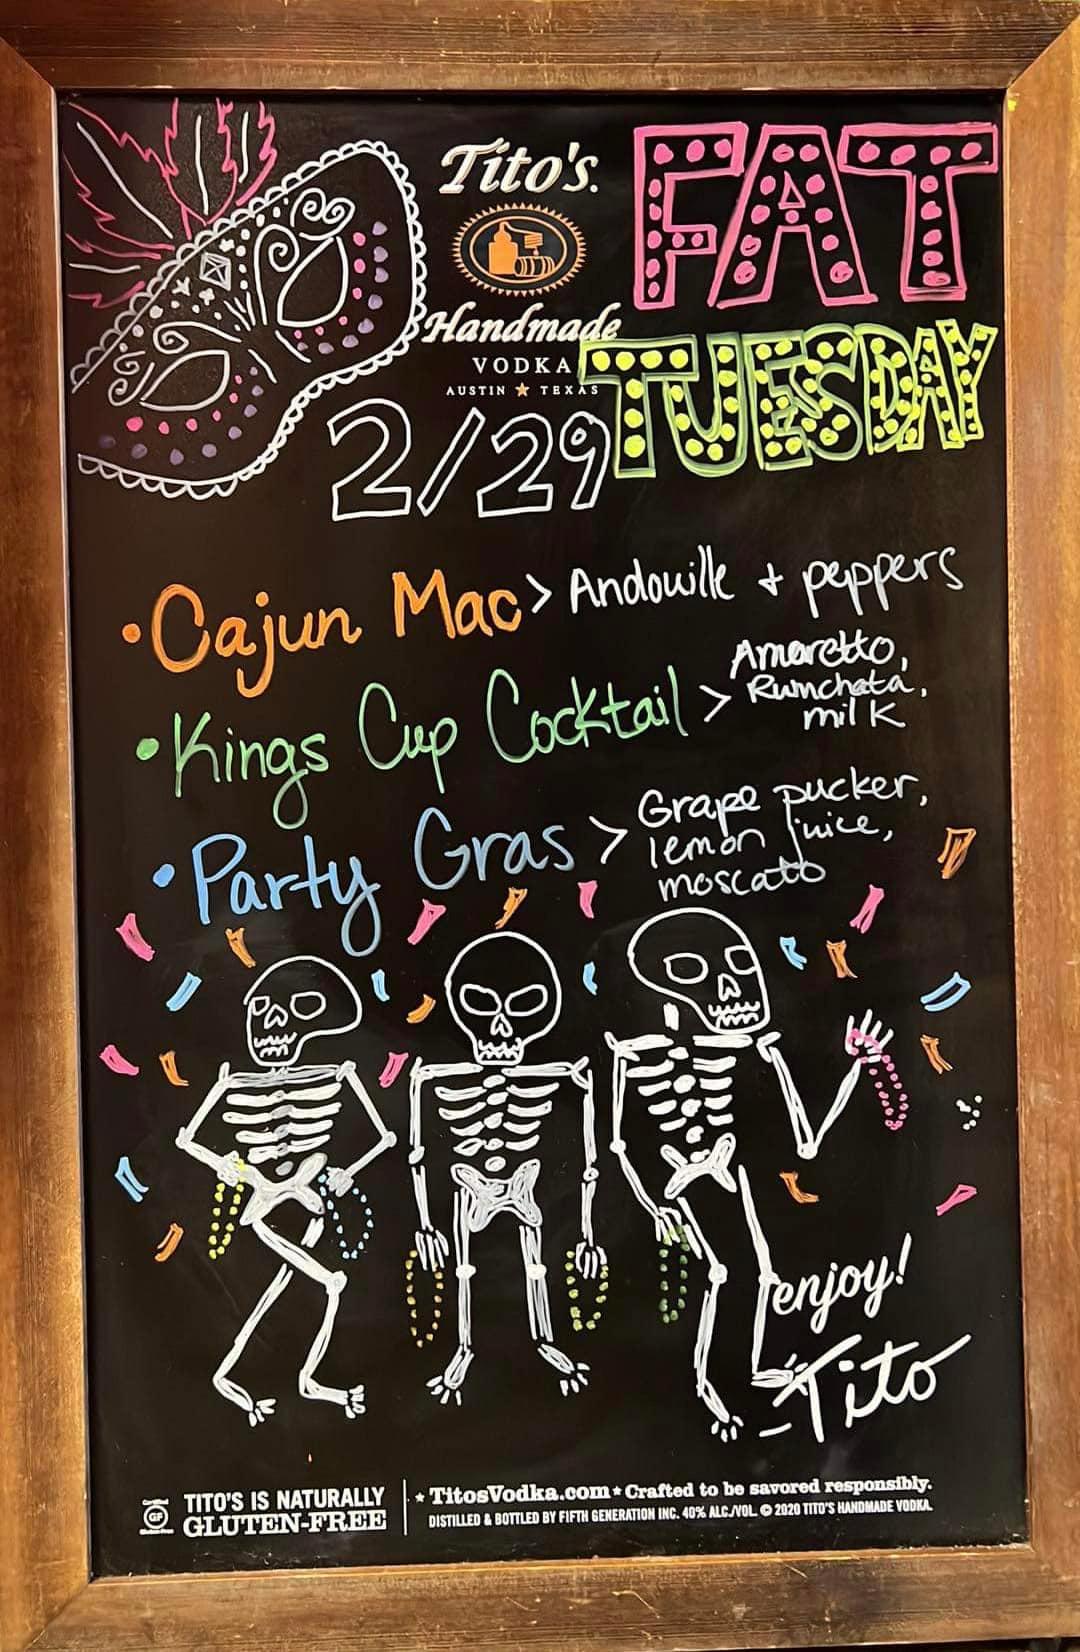 Tito's.
Handmade
VODKA
AUSTIN ★ TEXAS
FAT
TUESDAY
2/29
• Cajun Mac > Andouille + peppers
• Kings Cup Cocktail > Amaretto,
Rumchata,
milk
• Party Gras > Grape pucker,
lemon juice,
moscato
enjoy!
-Tito
Certified
GF
Gluten-Free
TITO'S IS NATURALLY
GLUTEN-FREE
★ TitosVodka.com ★ Crafted to be savored responsibly.
DISTILLED & BOTTLED BY FIFTH GENERATION INC. 40% ALC./VOL. © 2020 TITO'S HANDMADE VODKA.